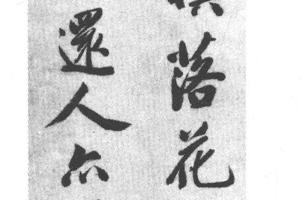 落花
還人亦